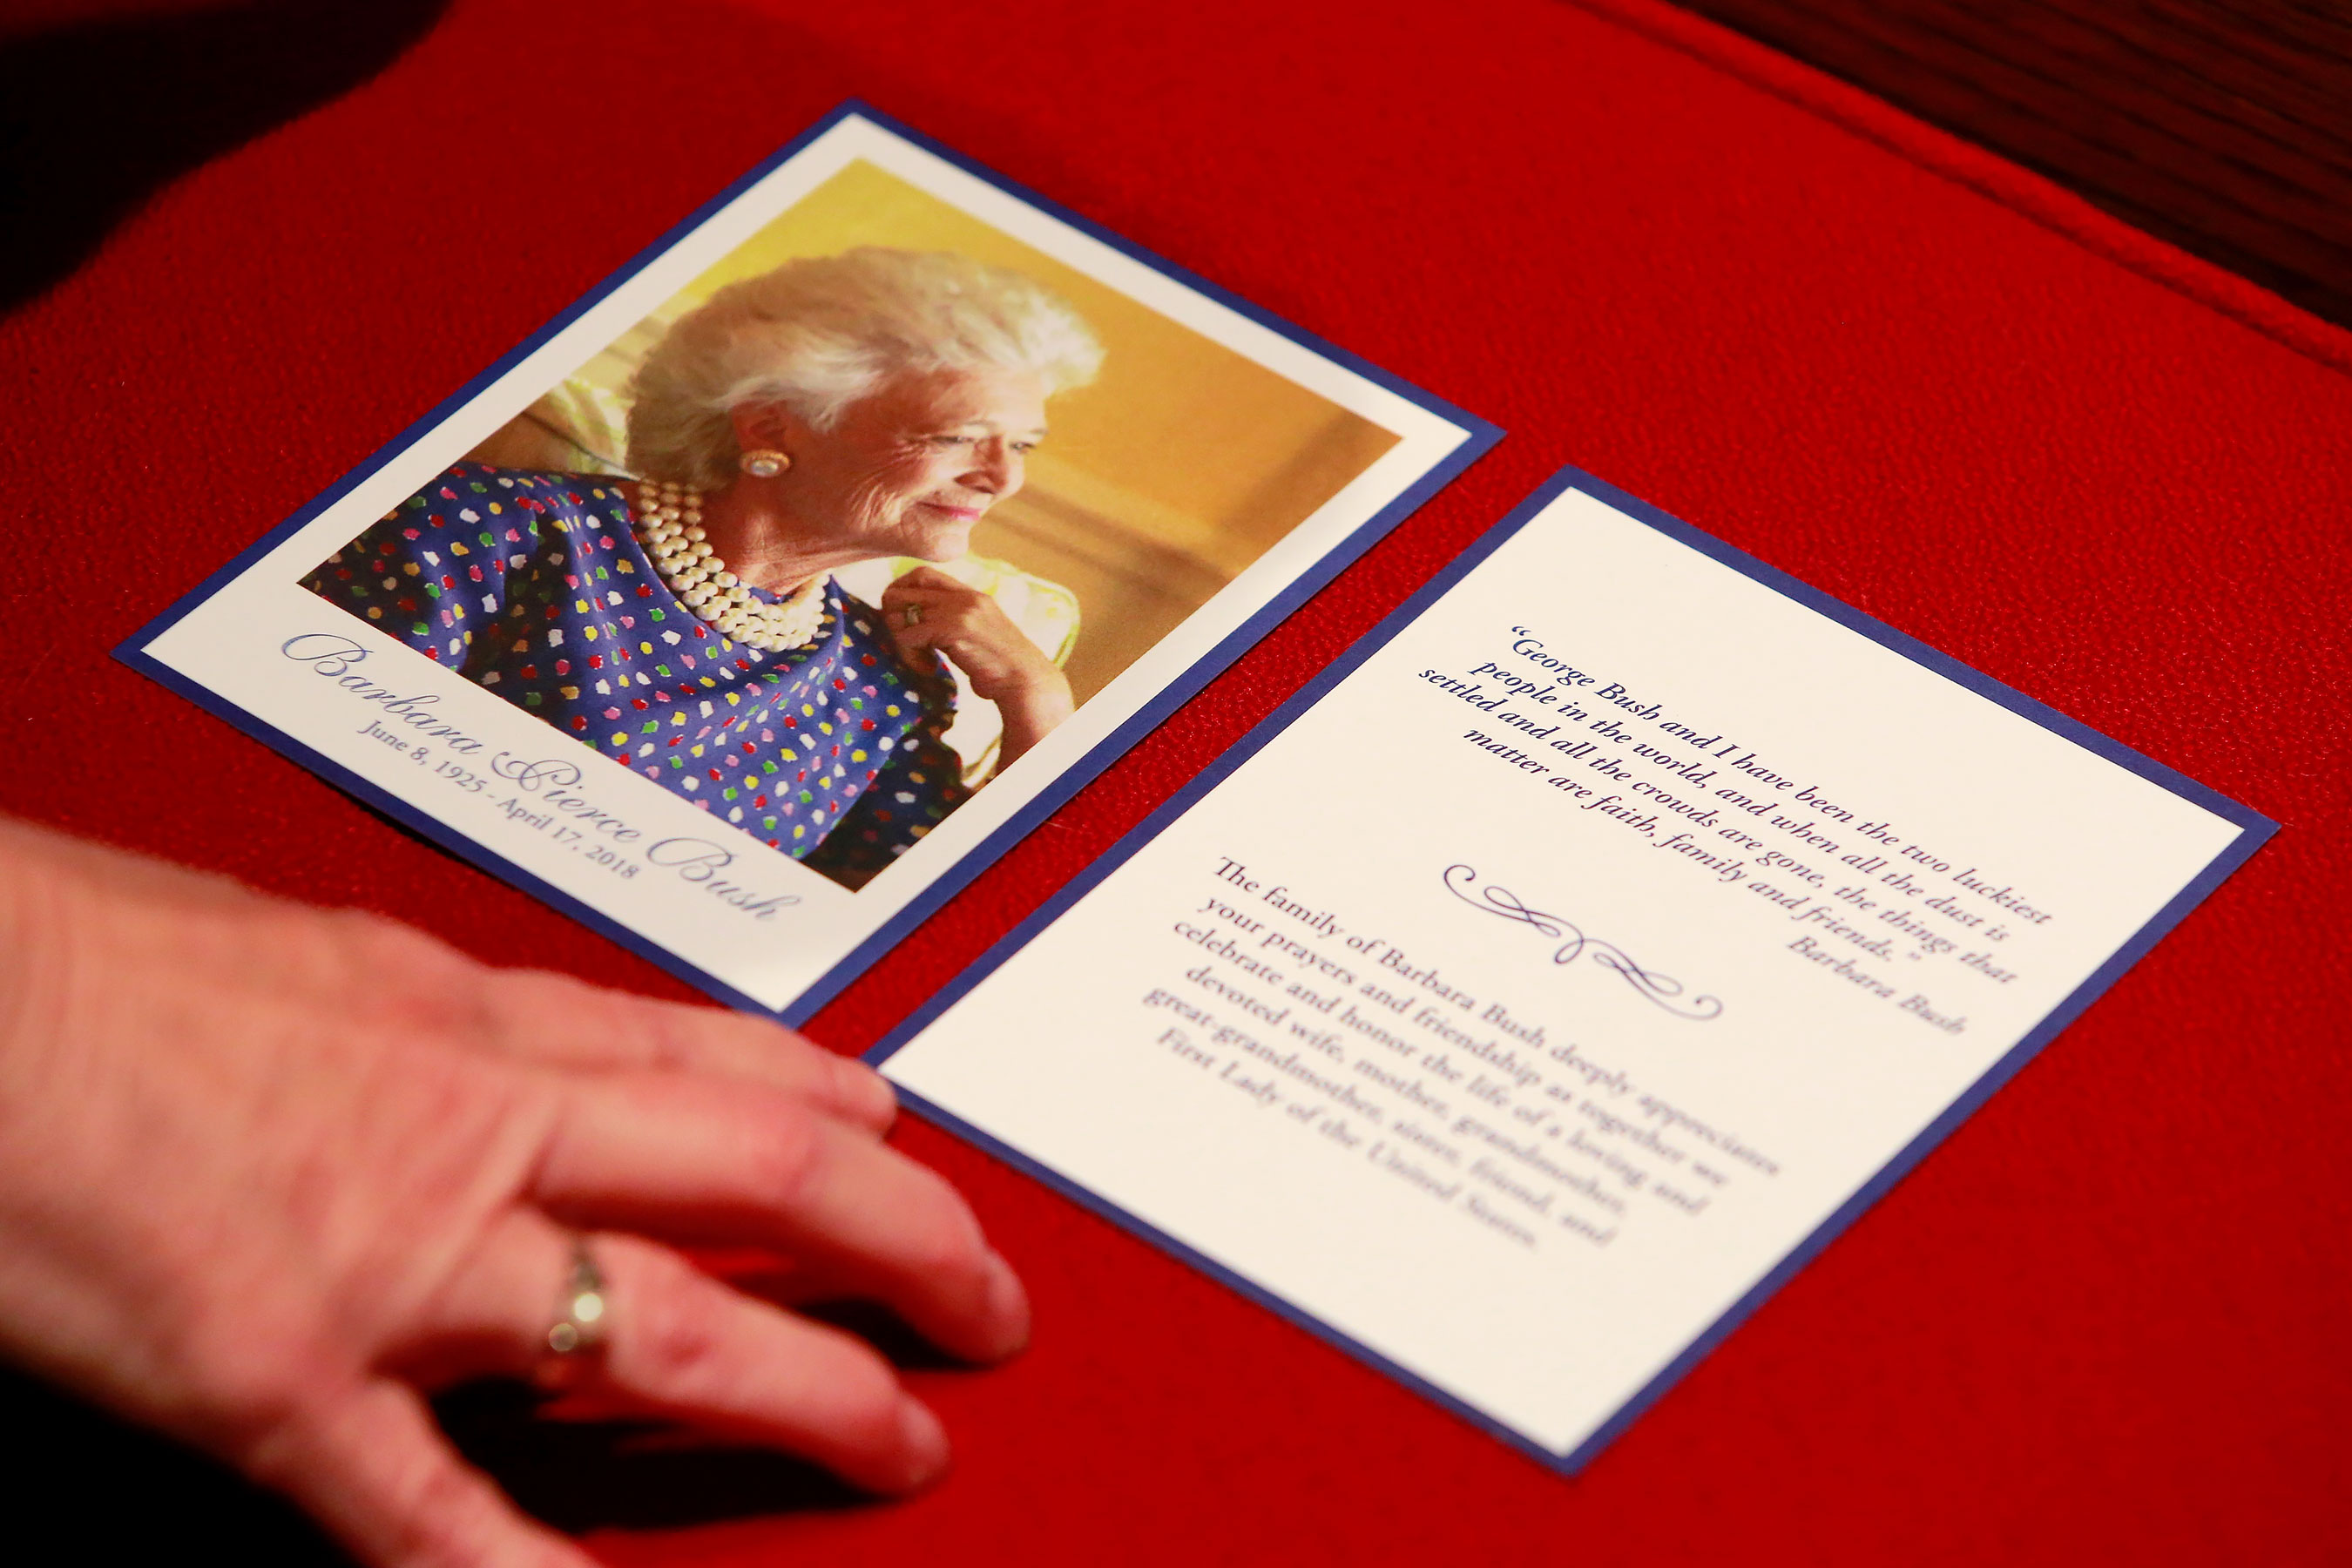 Barbara Pierce Bush
June 8, 1925 - April 17, 2018
“George Bush and I have been the two luckiest
people in the world, and when all the dust is
settled and all the crowds are gone, the things that
matter are faith, family and friends.”
Barbara Bush
The family of Barbara Bush deeply appreciates
your prayers and friendship as together we
celebrate and honor the life of a loving and
devoted wife, mother, grandmother,
great-grandmother, sister, friend, and
First Lady of the United States.